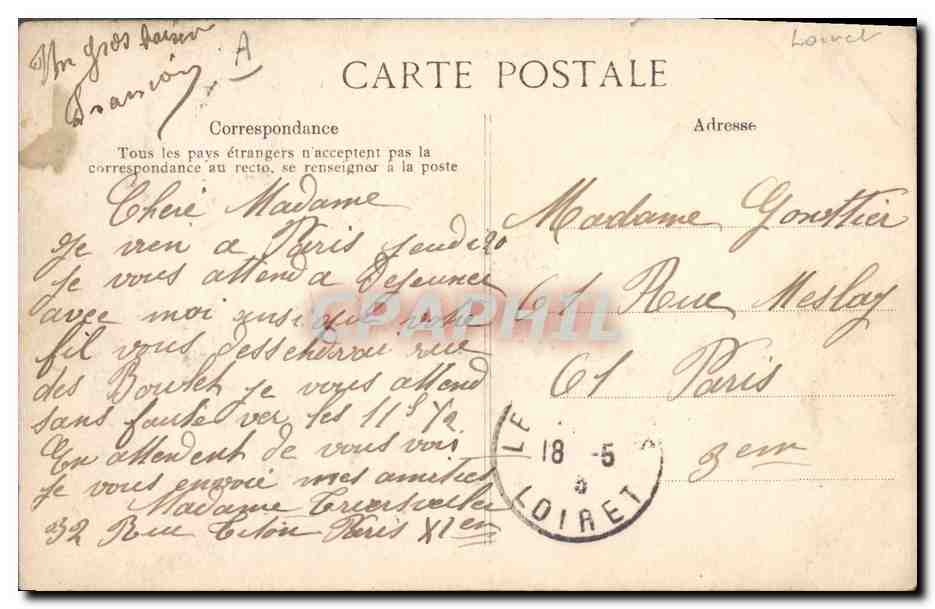 Un gros baiser
A
Loiret
CARTE POSTALE
Correspondance
Tous les pays étrangers n'acceptent pas la
correspondance au recto, se renseigner à la poste
Adresse
Chere Madame
Je vien a Paris jeudi 20
Je vous attend a Dejeuner
avec moi ansi que votre
fil vous dessenderai rue
des Boulet je vous attend
sans faute ver les 11h 1/2
En attendent de vous voir
Je vous envoie mes amities
Madame
32 Rue Titon Paris XIem
Madame Gonthier
61 Rue Meslay
61 Paris
3em
LE
18 -5
LOIRET
CPAPHIL